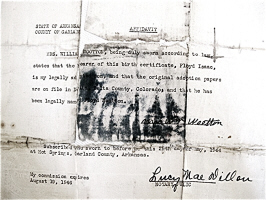 STATE OF ARKANSAS
COUNTY OF GARLAND
AFFIDAVIT
MRS. WILLIE WOOTTON, being duly sworn according to law,
states that the bearer of this birth certificate, Floyd Isaac,
is my legally adopted son, and that the original adoption papers
are on file in County, Colorado; and that he has
been legally
Wootton
Subscribed and sworn to before me this day of May, 1944
at Hot Springs, Garland County, Arkansas.
My commission expires
August 10, 1946
Lucy Mae Dillon
NOTARY PUBLIC